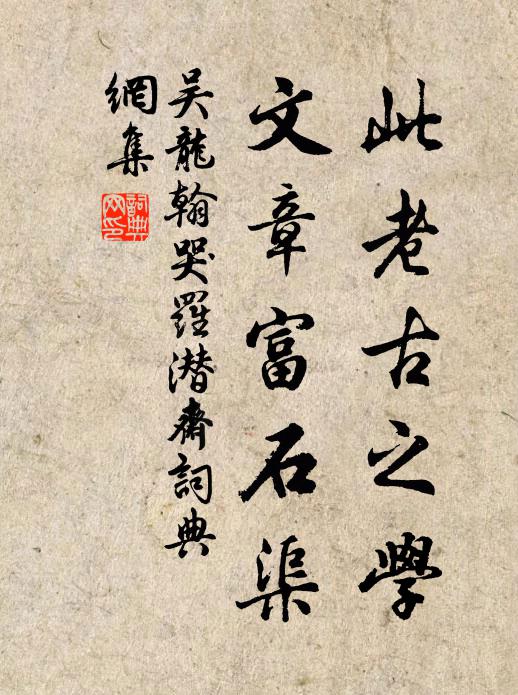 此老古之學
文章富石渠
吳龍翰哭羅潛齋詞典
網集
詞典
网印